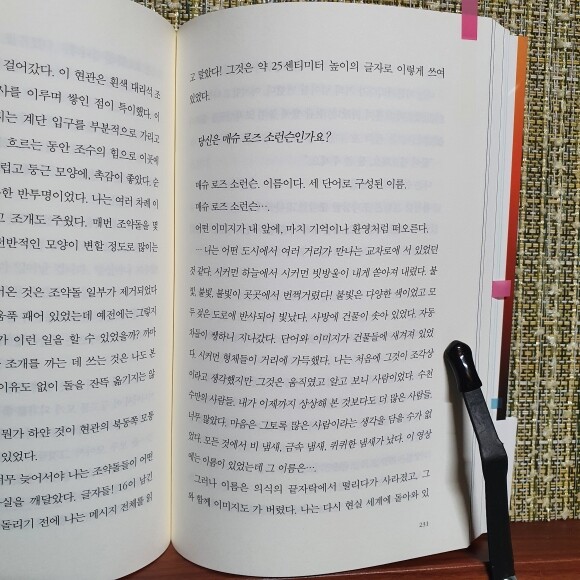 걸어갔다. 이 현관은 흰색 대리석 조
사를 이루며 쌓인 점이 특이했다. 이
지는 계단 입구를 부분적으로 가리고
흐르는 동안 조수의 힘으로 이곳에
럽고 둥근 모양에, 촉감이 좋았다. 순
한 반투명이었다. 나는 여러 차례 이
고 조개도 주웠다. 매번 조약돌을 몇
전반적인 모양이 변할 정도로 많이는
어온 것은 조약돌 일부가 제거되었다
움푹 패어 있었는데 예전에는 그렇지
가 이런 일을 할 수 있었을까? 까마
조개를 까는 데 쓰는 것은 나도 본
이유도 없이 돌을 잔뜩 옮기지는 않
뭔가 하얀 것이 현관의 북동쪽 모퉁
있었다.
너무 늦어서야 나는 조약돌들이 어떤
사실을 깨달았다. 글자들! 16이 남긴
돌리기 전에 나는 메시지 전체를 읽
고 말았다! 그것은 약 25센티미터 높이의 글자로 이렇게 쓰여
있었다.
당신은 매슈 로즈 소런슨인가요?
매슈 로즈 소런슨. 이름이다. 세 단어로 구성된 이름.
매슈 로즈 소런슨….
어떤 이미지가 내 앞에, 마치 기억이나 환영처럼 떠오른다.
―나는 어떤 도시에서 여러 거리가 만나는 교차로에 서 있었던
것 같다. 시커먼 하늘에서 시커먼 빗방울이 내게 쏟아져 내렸다. 불
빛, 불빛, 불빛이 곳곳에서 번쩍거렸다! 불빛은 다양한 색이었고 모
두 젖은 도로에 반사되어 빛났다. 사방에 건물이 솟아 있었다. 자동
차들이 쌩하니 지나갔다. 단어와 이미지가 건물들에 새겨져 있었
다. 시커먼 형체들이 거리에 가득했다. 나는 처음에 그것이 조각상
이라고 생각했지만 그것은 움직였고 알고 보니 사람이었다. 수천
수만의 사람들. 내가 이제까지 상상해 본 것보다도 더 많은 사람들.
너무 많았다. 마음은 그토록 많은 사람이라는 생각을 담을 수가 없
었다. 모든 것에서 비 냄새, 금속 냄새, 퀴퀴한 냄새가 났다. 이 영상
에는 이름이 있었는데 그 이름은….
그러나 이름은 의식의 끝자락에서 떨리다가 사라졌고, 그
와 함께 이미지도 가 버렸다. 나는 다시 현실 세계에 돌아와 있
231